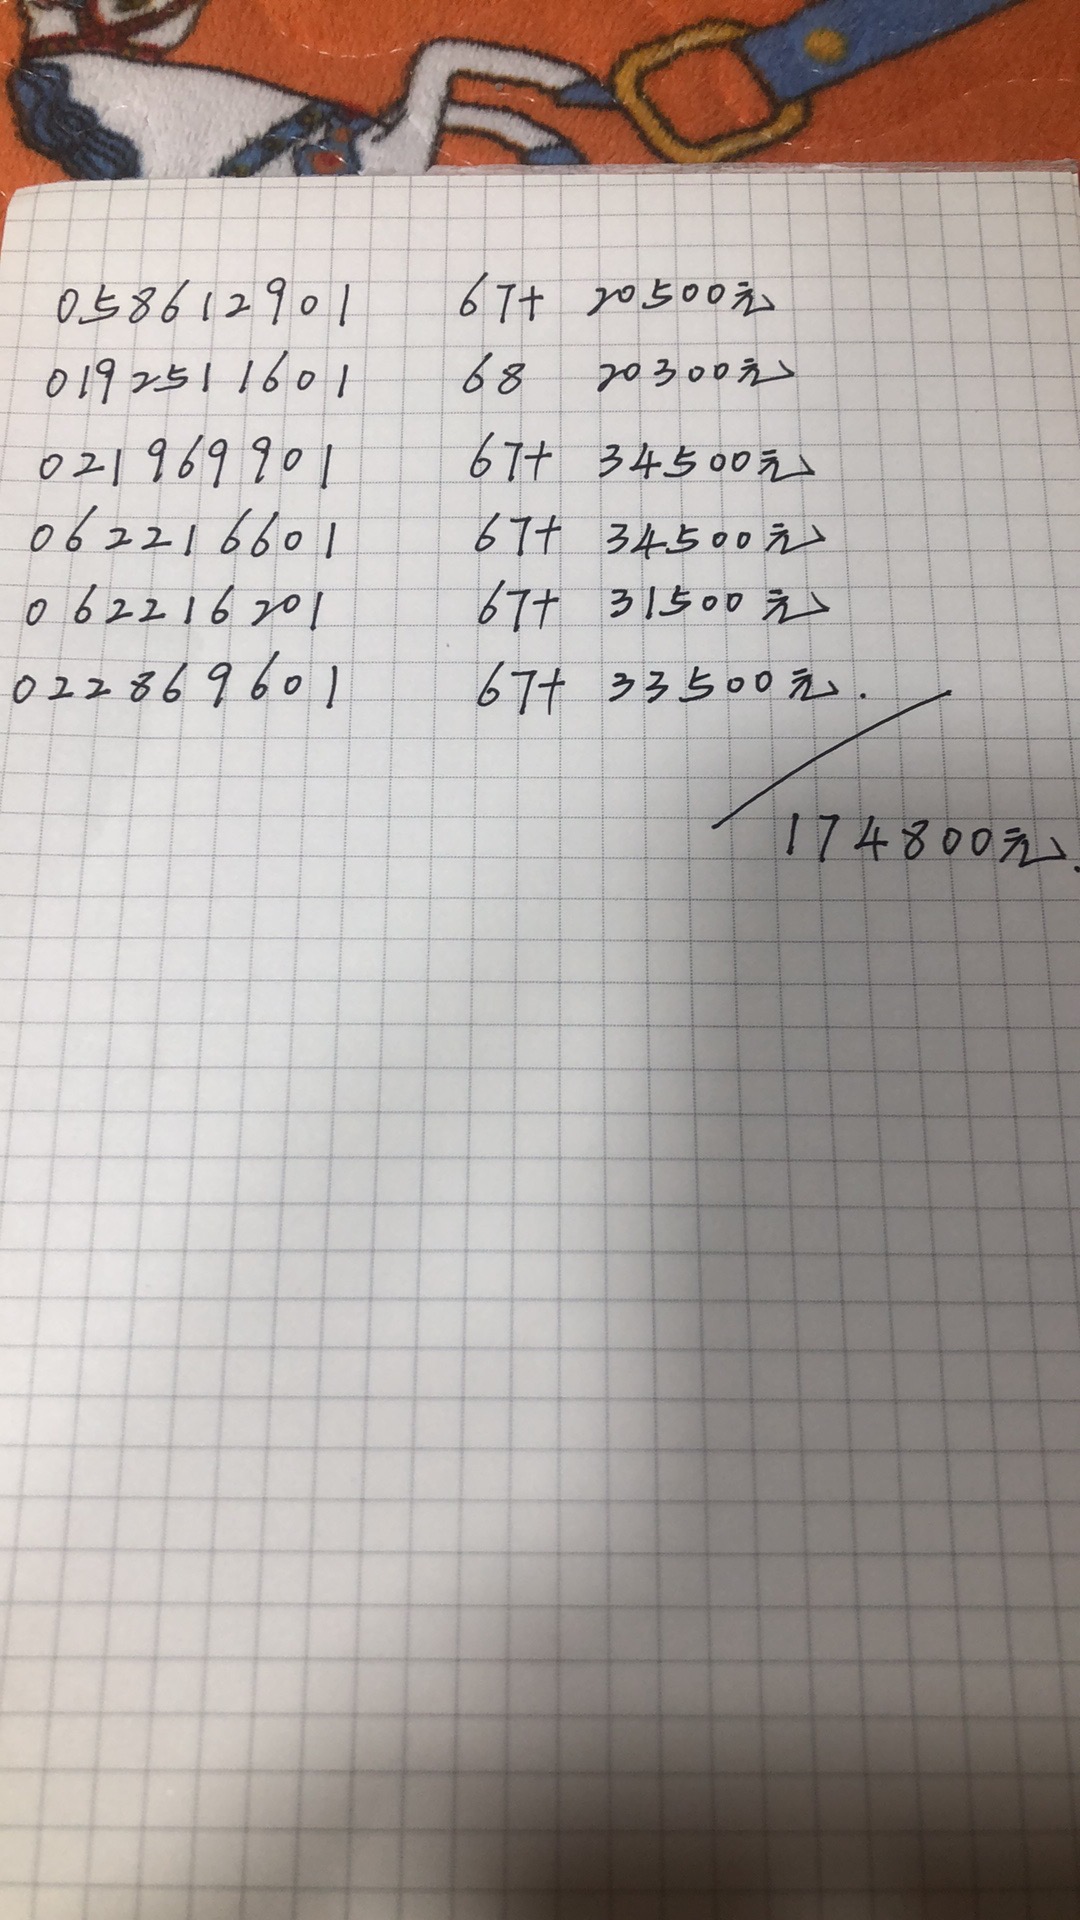 058612901 67+ 20500元
0192511601 68 20300元
021969901 67+ 34500元
062216601 67+ 34500元
062216201 67+ 31500元
022869601 67+ 33500元.
174800元.